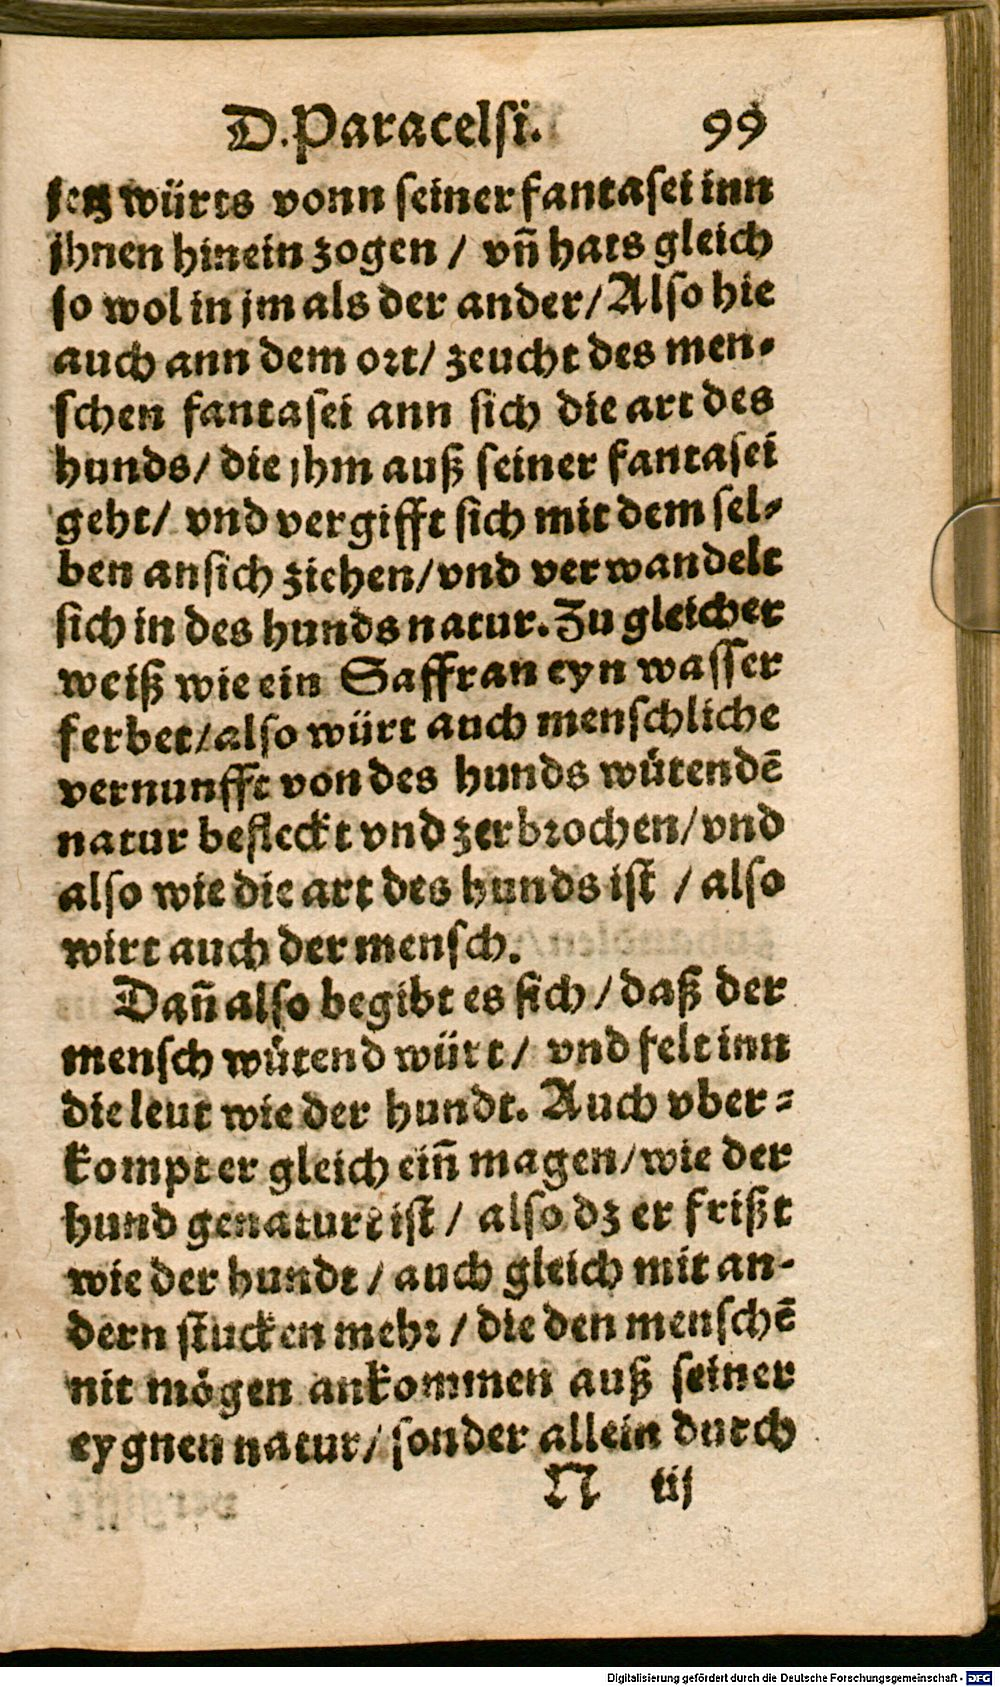 D. Paracelsi. 99
jetz würts vonn seiner fantasei inn
jhnen hinein zogen / vñ hats gleich
so wol in jm als der ander / Also hie
auch ann dem ort / zeucht des men-
schen fantasei ann sich die art des
hunds / die jhm auß seiner fantasei
geht / vnd vergifft sich mit dem sel-
ben ansich ziehen / vnd verwandelt
sich in des hunds natur. Zu gleicher
weiß wie ein Saffran eyn wasser
ferbet / also würt auch menschliche
vernunfft von des hunds wütendē
natur befleckt vnd zerbrochen / vnd
also wie die art des hunds ist / also
wirt auch der mensch.
Dañ also begibt es sich / daß der
mensch wütend würt / vnd felt inn
die leut wie der hundt. Auch vber-
kompt er gleich eiñ magen / wie der
hund genaturt ist / also dz er frißt
wie der hundt / auch gleich mit an-
dern stucken mehr / die den menschē
nit mögen ankommen auß seiner
eygnen natur / sonder allein durch
N iij
Digitalisierung gefördert durch die Deutsche Forschungsgemeinschaft - DFG